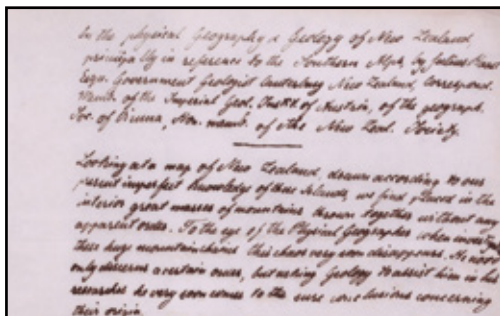 On the physical Geography & Geology of New Zealand,
principally in reference to the Southern Alps, by Julius Haast
Esqu. Government Geologist Canterbury New Zealand, Correspond.
Memb. of the Imperial Geol. of Austria, of the geograph.
Soc. of Vienna, Hon. memb. of the New Zeal. Society.
Looking at a map of New Zealand, drawn according to our
present imperfect knowledge of these Islands, we find placed in the
interior great masses of mountains thrown together without any
apparent order. To the eye of the Physical Geographer when
these huge mountainchains this chaos very soon disappears. He not
only discerns a certain order, but asking Geology to assist him in his
researches he very soon comes to the sure conclusions concerning
their origin.